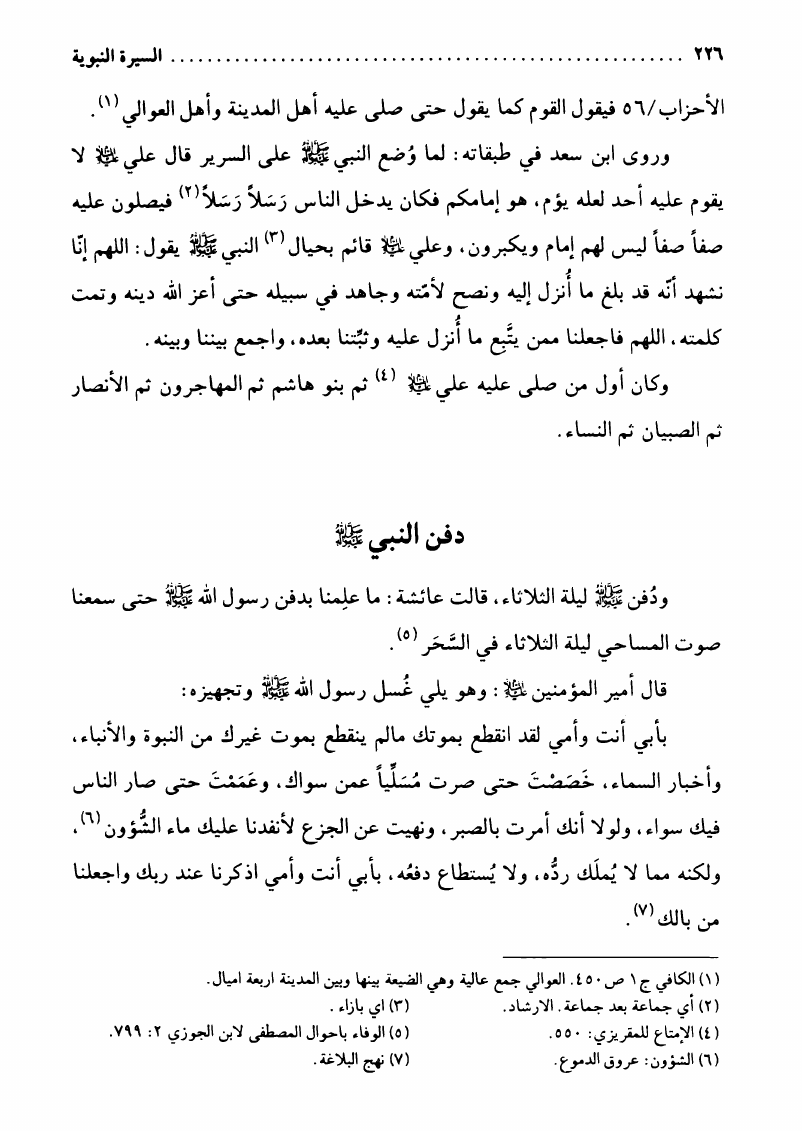 ٢٢٦ ........................................................ السيرة النبوية
الأحزاب/٥٦ فيقول القوم كما يقول حتى صلى عليه أهل المدينة وأهل العوالي(١).
وروى ابن سعد في طبقاته: لما وُضع النبي ﷺ على السرير قال علي عليه السلام لا
يقوم عليه أحد لعله يؤم، هو إمامكم فكان يدخل الناس رَسَلاً رَسَلاً(٢) فيصلون عليه
صفاً صفاً ليس لهم إمام ويكبرون، وعلي عليه السلام قائم بحيال(٣) النبي ﷺ يقول: اللهم إنّا
نشهد أنّه قد بلغ ما أُنزل إليه ونصح لأمّته وجاهد في سبيله حتى أعز الله دينه وتمت
كلمته، اللهم فاجعلنا ممن يتَّبِع ما أُنزل عليه وثبِّتنا بعده، واجمع بيننا وبينه.
وكان أول من صلى عليه علي عليه السلام (٤) ثم بنو هاشم ثم المهاجرون ثم الأنصار
ثم الصبيان ثم النساء.
دفن النبي ﷺ
ودُفن ﷺ ليلة الثلاثاء، قالت عائشة: ما علِمنا بدفن رسول الله ﷺ حتى سمعنا
صوت المساحي ليلة الثلاثاء في السَّحَر(٥).
قال أمير المؤمنين عليه السلام: وهو يلي غُسل رسول الله ﷺ وتجهيزه:
بأبي أنت وأمي لقد انقطع بموتك مالم ينقطع بموت غيرك من النبوة والأنباء،
وأخبار السماء، خَصَصْتَ حتى صرت مُسَلِّياً عمن سواك، وعَمَمْتَ حتى صار الناس
فيك سواء، ولولا أنك أمرت بالصبر، ونهيت عن الجزع لأنفدنا عليك ماء الشُّؤون(٦)،
ولكنه مما لا يُملَك ردُّه، ولا يُستطاع دفعُه، بأبي أنت وأمي اذكرنا عند ربك واجعلنا
من بالك(٧).
(١) الكافي ج١ ص٤٥٠. العوالي جمع عالية وهي الضيعة بينها وبين المدينة اربعة اميال.
(٢) أي جماعة بعد جماعة. الارشاد. (٣) اي بازاء.
(٤) الإمتاع للمقريزي: ٥٥٠. (٥) الوفاء باحوال المصطفى لابن الجوزي ٢: ٧٩٩.
(٦) الشؤون: عروق الدموع. (٧) نهج البلاغة.